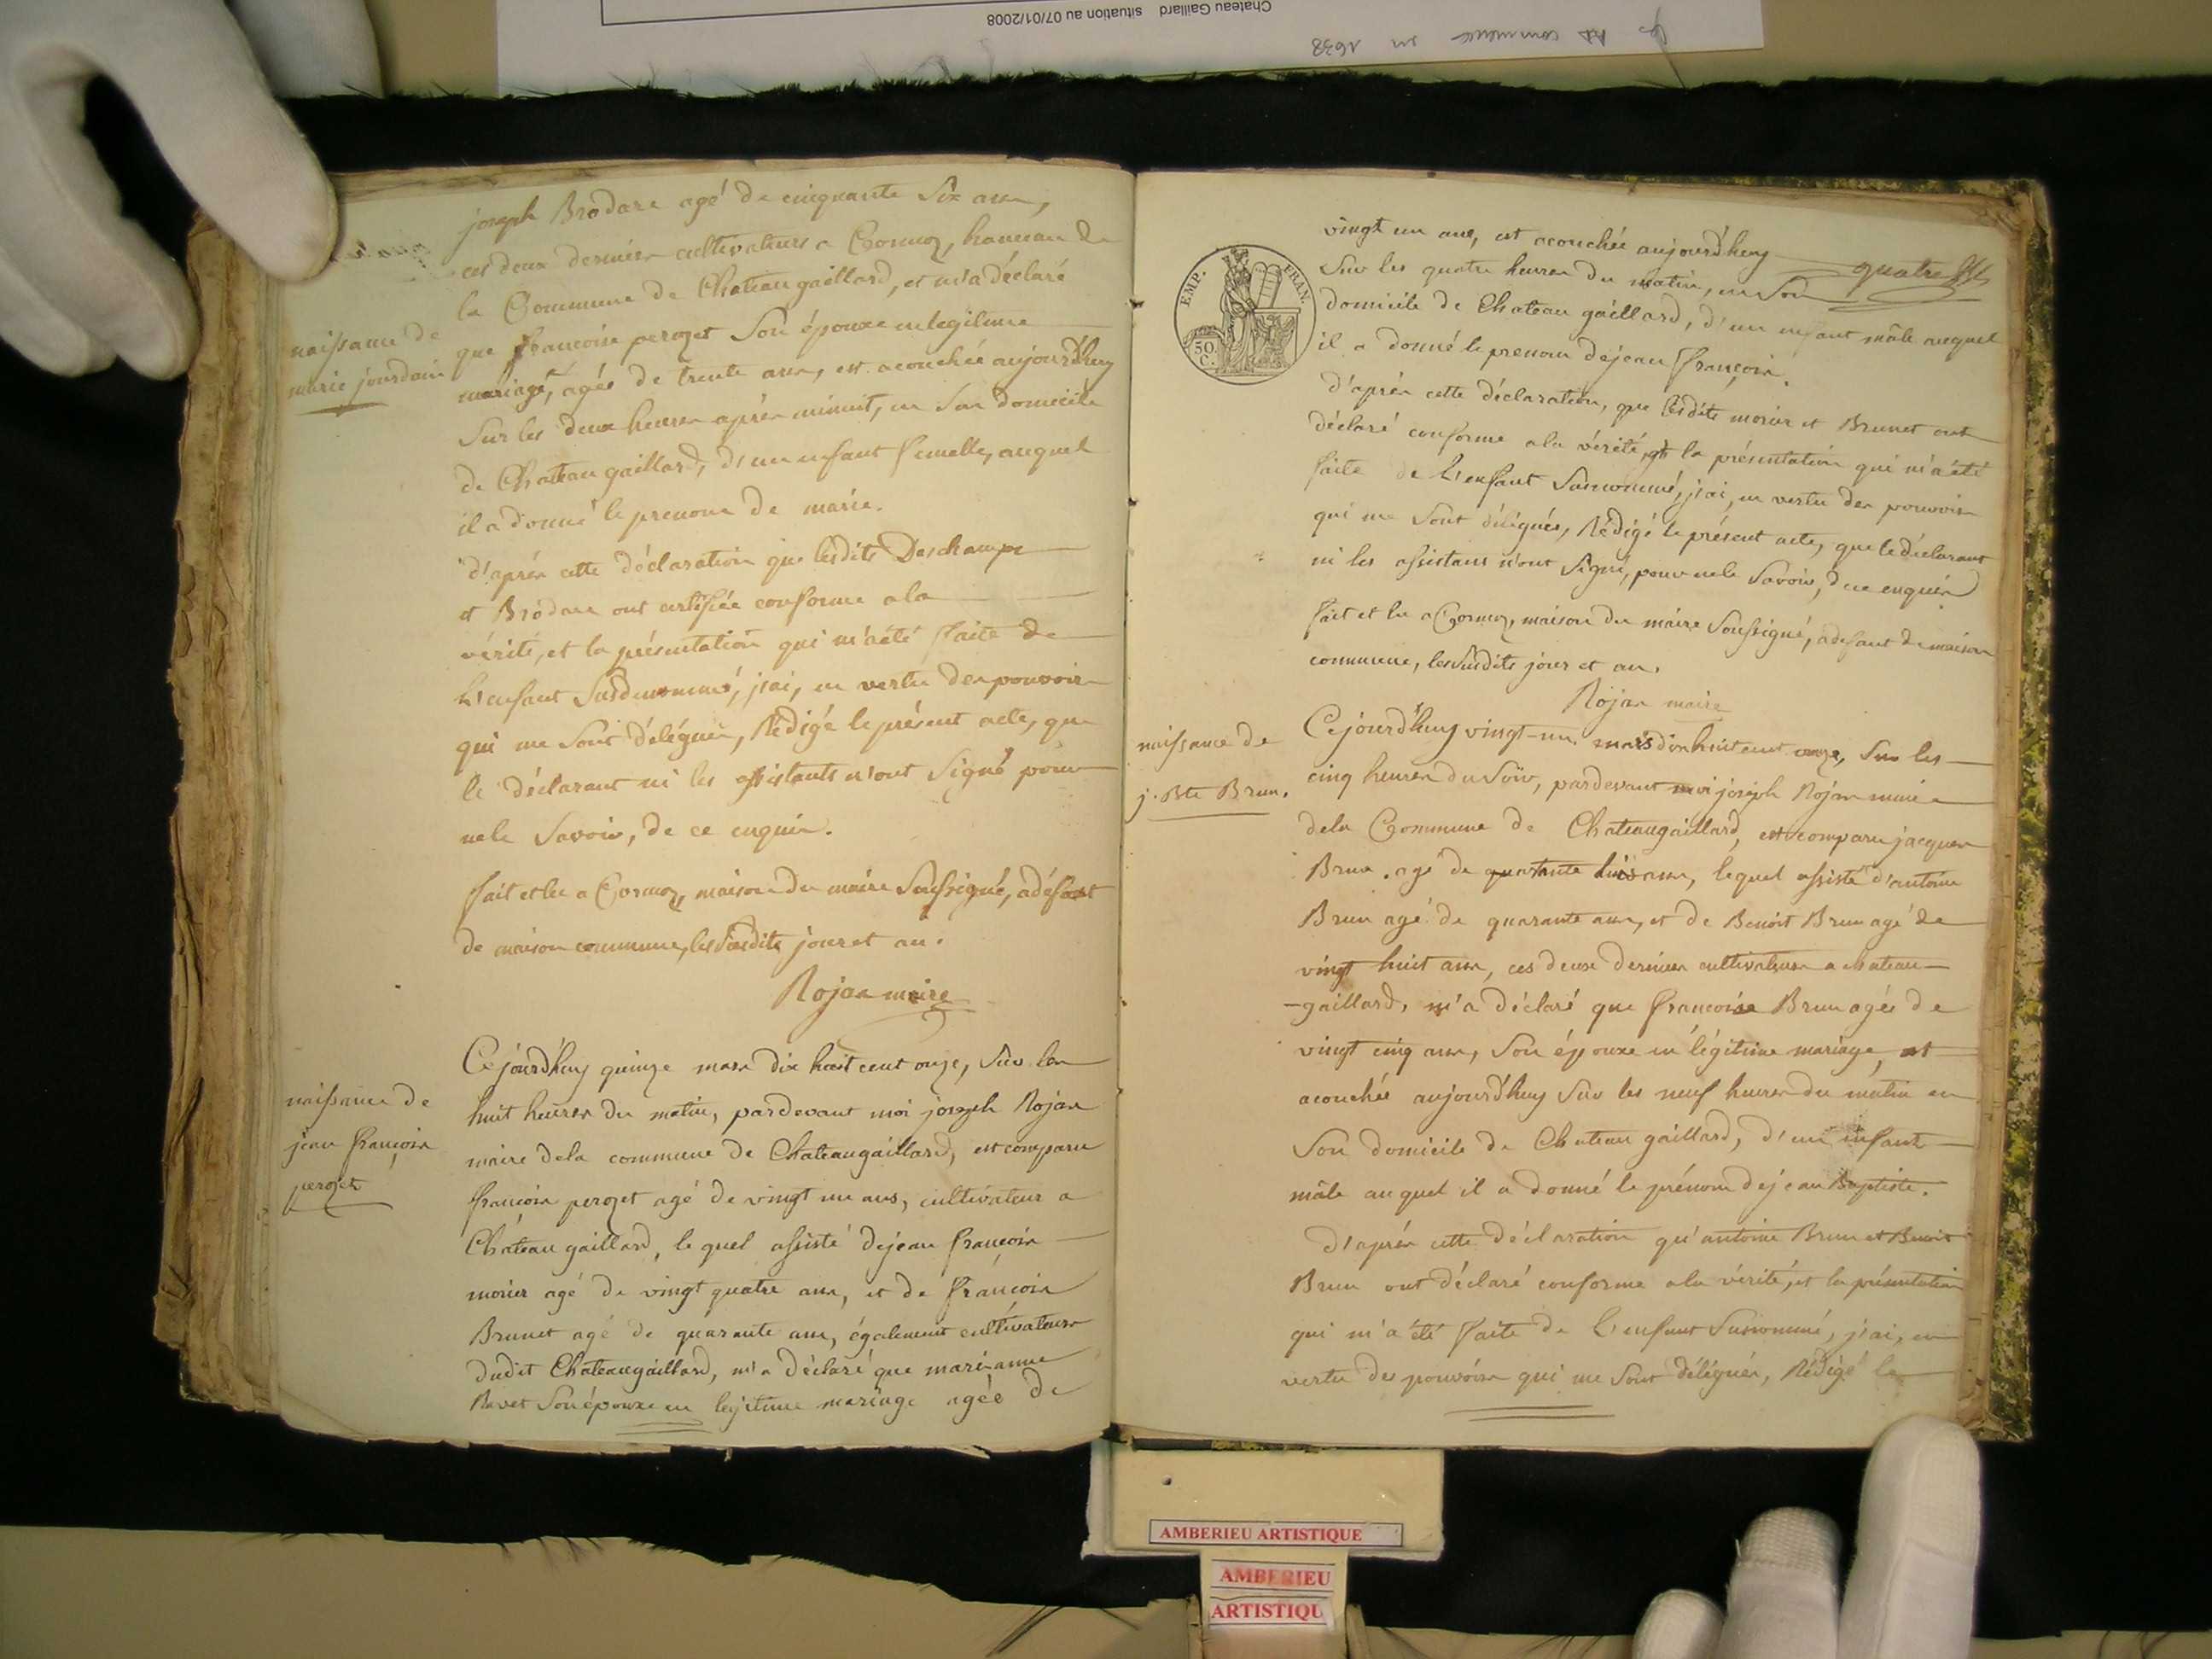 Chateau Gaillard situation au 07/01/2008
commence en 1638
joseph Brodare agé de cinquante Six ans,
ces deux derniers cultivateurs a Cormoz, hameau de
la Commune de Chateau gaillard, et m'a déclaré
naissance de
marie jourdain
que francoise perozet Son épouse en legitime
mariage, agée de trente ans, est acouchée aujourd'huy
Sur les deux heures après minuit, en Son domicile
de Chateau gaillard, d'un enfant femelle, auquel
il a donné le prenom de marie.
d'après cette déclaration que lesdits Deschamps
et Brodare ont certifiée conforme a la
vérité, et la présentation qui m'a été faite de
l'enfant Susdenommé, j'ai, en vertu des pouvoirs
qui me Sont délégués, Rédigé le présent acte, que
le déclarant ni les assistants n'ont Signé pour
ne le Savoir, de ce enquis.
fait et lu a Cormoz, maison du maire Soussigné, a défaut
de maison commune, les Susdits jour et an.
Rojas maire
naissance de
jean françois
perozet
Cejourd'huy quinze mars dix huit cent onze, Sur les
huit heures du matin, pardevant moi joseph Rojas
maire dela commune de Chateaugaillard, est comparu
françois perozet agé de vingt un ans, cultivateur a
Chateau gaillard, le quel assisté dejean françois
morier agé de vingt quatre ans, et de françois
Brunet agé de quarante ans, également cultivateurs
dudit Chateaugaillard, m'a déclaré que marianne
Ravet Son épouse en legitime mariage agée de
EMP. FRAN.
50.
C.
quatre
vingt un ans, est acouchée aujourd'huy
Sur les quatre heures du matin, en Son
domicile de Chateau gaillard, d'un enfant mâle auquel
il a donné le prenom dejean françois.
d'après cette déclaration, que lesdits morier et Brunet ont
déclaré conforme a la vérité, et la présentation qui m'a été
faite de l'enfant Susnommé, j'ai, en vertu des pouvoirs
qui me Sont délégués, Rédigé le présent acte, que le déclarant
ni les assistans n'ont Signé, pour ne le Savoir, de ce enquis
fait et lu a Cormoz, maison du maire Soussigné, a defaut de maison
commune, les Susdits jour et an.
Rojas maire
naissance de
j. Bte Brun.
Cejourd'huy vingt-un mars dix huit cent onze, Sur les
cinq heures du Soir, pardevant moi joseph Rojas maire
dela Commune de Chateaugaillard, est comparu jacques
Brun. agé de quarante huit ans, lequel assisté d'antoine
Brun agé de quarante ans, et de Benoit Brun agé de
vingt huit ans, ces deux derniers cultivateurs a chateau-
-gaillard, m'a déclaré que francoise Brun agée de
vingt cinq ans, Son épouse en légitime mariage, est
acouchée aujourd'huy Sur les neuf heures du matin en
Son domicile de Chateau gaillard, d'un enfant
mâle auquel il a donné le prénom dejean Baptiste.
d'après cette déclaration qu'antoine Brun et Benoit
Brun ont déclaré conforme a la vérité, et la présentation
qui m'a été faite de l'enfant Susnommé, j'ai, en
vertu des pouvoirs qui me Sont délégués, Rédigé le
AMBERIEU ARTISTIQUE
AMBERIEU
ARTISTIQU